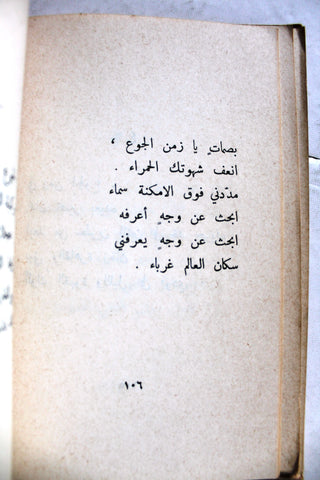 بصمتٍ يا زمن الجوع ،
انعف شهوتك الحمراء .
مدّدني فوق الامكنة سماء
ابحث عن وجهٍ أعرفه
ابحث عن وجهٍ يعرفني
سكان العالم غرباء .
١٠٦